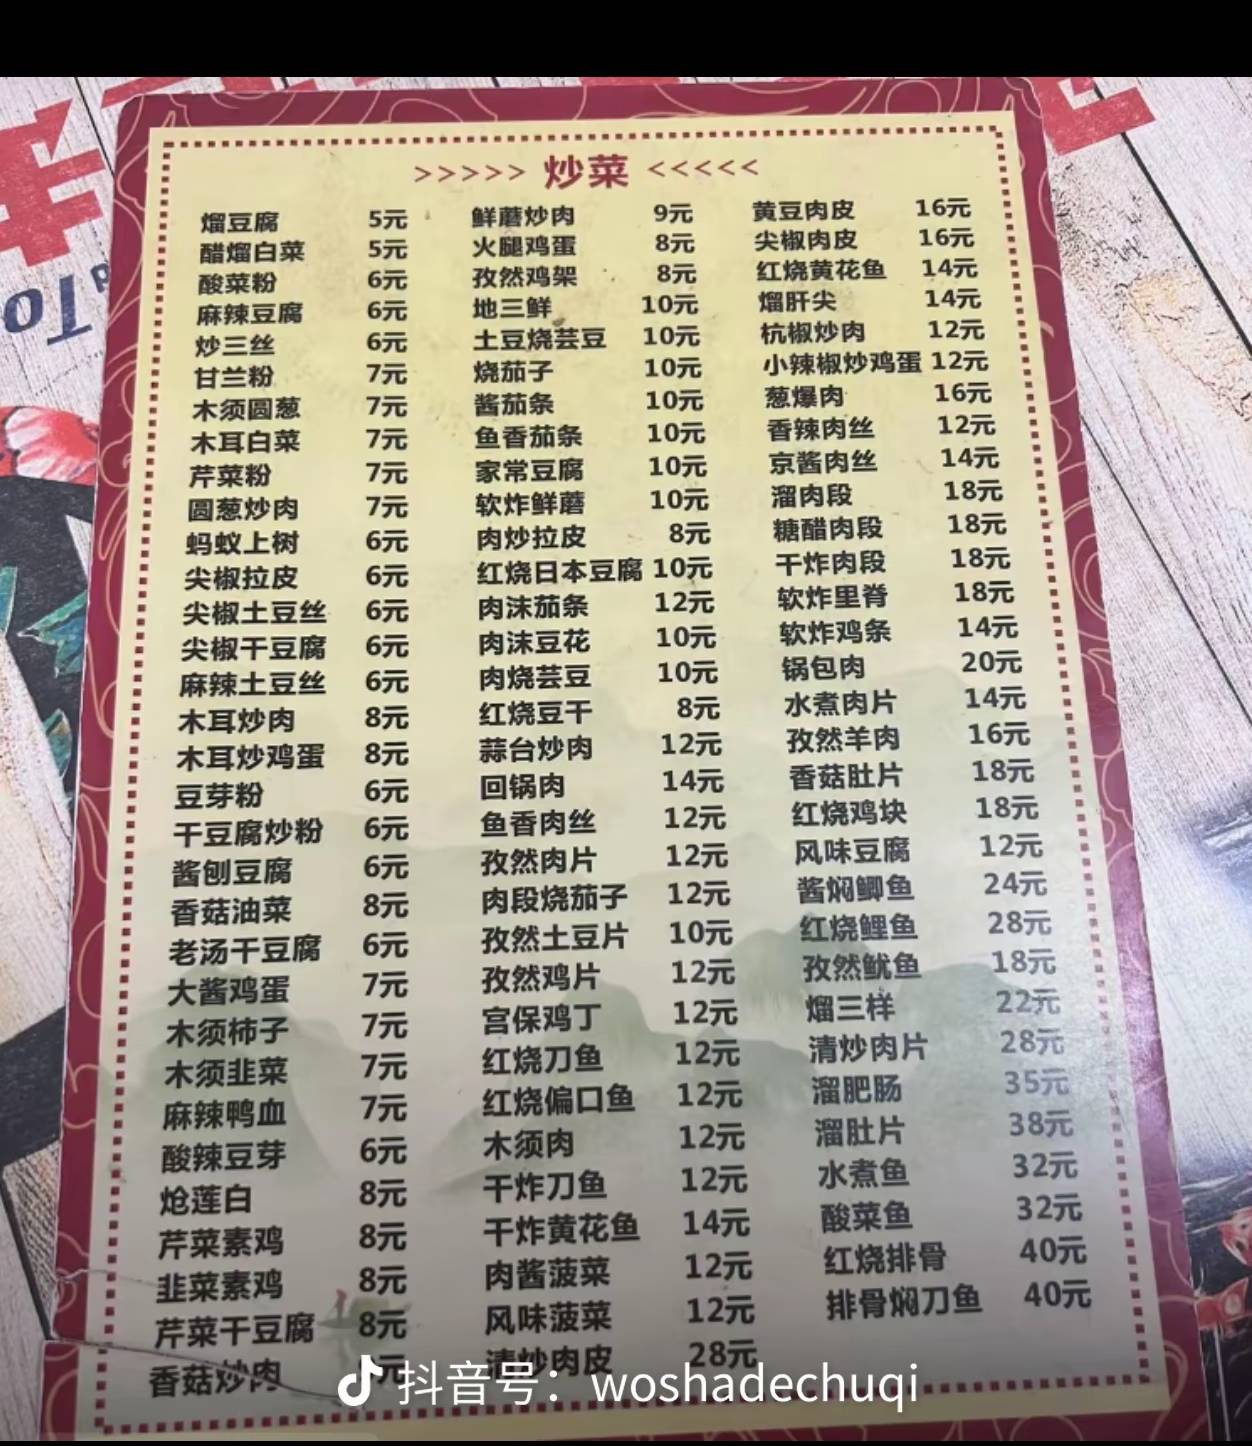 >>>>> 炒菜 <<<<<
馏豆腐 5元
醋馏白菜 5元
酸菜粉 6元
麻辣豆腐 6元
炒三丝 6元
甘兰粉 7元
木须圆葱 7元
木耳白菜 7元
芹菜粉 7元
圆葱炒肉 7元
蚂蚁上树 6元
尖椒拉皮 6元
尖椒土豆丝 6元
尖椒干豆腐 6元
麻辣土豆丝 6元
木耳炒肉 8元
木耳炒鸡蛋 8元
豆芽粉 6元
干豆腐炒粉 6元
酱刨豆腐 6元
香菇油菜 8元
老汤干豆腐 6元
大酱鸡蛋 7元
木须柿子 7元
木须韭菜 7元
麻辣鸭血 7元
酸辣豆芽 6元
炝莲白 8元
芹菜素鸡 8元
韭菜素鸡 8元
芹菜干豆腐 8元
香菇炒肉 元
鲜蘑炒肉 9元
火腿鸡蛋 8元
孜然鸡架 8元
地三鲜 10元
土豆烧芸豆 10元
烧茄子 10元
酱茄条 10元
鱼香茄条 10元
家常豆腐 10元
软炸鲜蘑 10元
肉炒拉皮 8元
红烧日本豆腐 10元
肉沫茄条 12元
肉沫豆花 10元
肉烧芸豆 10元
红烧豆干 8元
蒜台炒肉 12元
回锅肉 14元
鱼香肉丝 12元
孜然肉片 12元
肉段烧茄子 12元
孜然土豆片 10元
孜然鸡片 12元
宫保鸡丁 12元
红烧刀鱼 12元
红烧偏口鱼 12元
木须肉 12元
干炸刀鱼 12元
干炸黄花鱼 14元
肉酱菠菜 12元
风味菠菜 12元
清炒肉皮 28元
黄豆肉皮 16元
尖椒肉皮 16元
红烧黄花鱼 14元
熘肝尖 14元
杭椒炒肉 12元
小辣椒炒鸡蛋 12元
葱爆肉 16元
香辣肉丝 12元
京酱肉丝 14元
溜肉段 18元
糖醋肉段 18元
干炸肉段 18元
软炸里脊 18元
软炸鸡条 14元
锅包肉 20元
水煮肉片 14元
孜然羊肉 16元
香菇肚片 18元
红烧鸡块 18元
风味豆腐 12元
酱焖鲫鱼 24元
红烧鲤鱼 28元
孜然鱿鱼 18元
熘三样 22元
清炒肉片 28元
溜肥肠 35元
溜肚片 38元
水煮鱼 32元
酸菜鱼 32元
红烧排骨 40元
排骨焖刀鱼 40元
抖音号：woshadechuqi